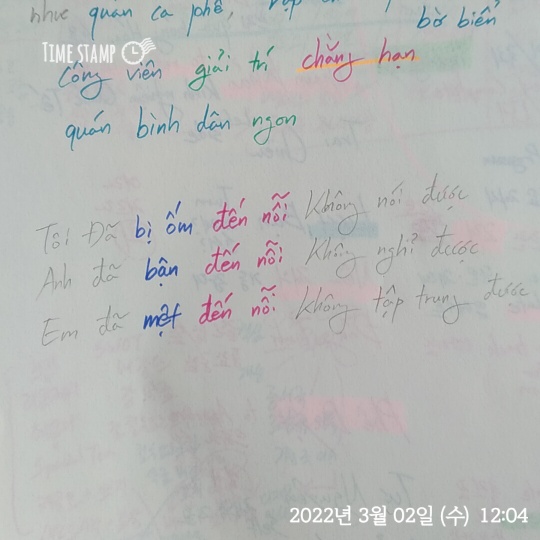 như quán cà phê,
bờ biển
TIME STAMP
Công viên giải trí chẳng hạn
quán bình dân ngon
Tôi Đã bị ốm đến nỗi Không nói được
Anh đã bận đến nỗi Không nghỉ được
Em đã mệt đến nỗi Không tập trung được
2022년 3월 02일 (수) 12:04